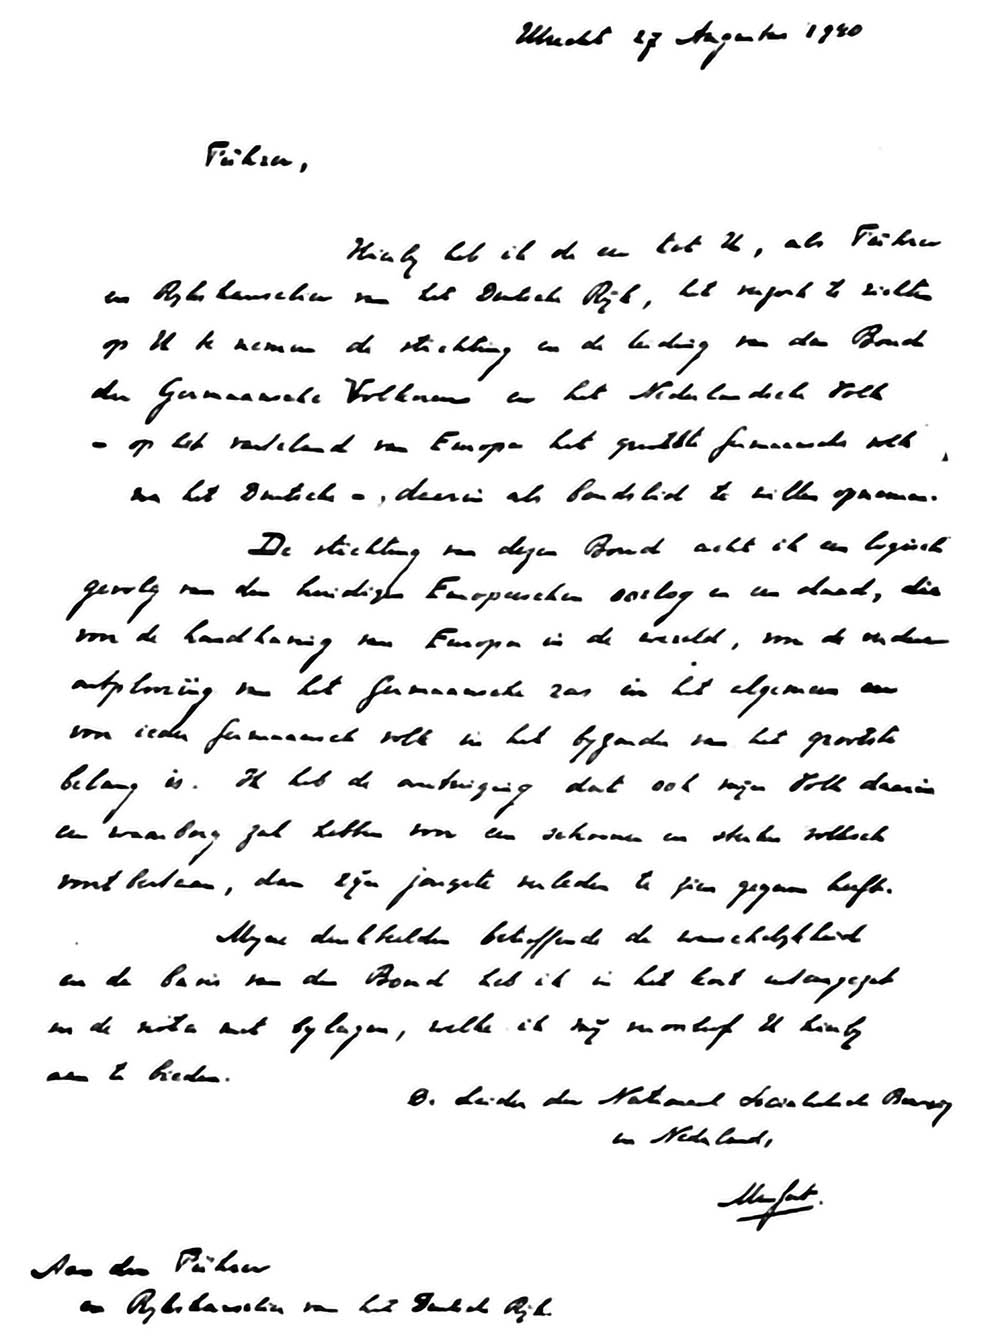 Utrecht 27 Augustus 1940
Führer,
Hierby heb ik de eer tot U, als Führer
en Rykskanselier van het Duitsche Ryk, het verzoek te richten
op U te nemen de stichting en de leiding van den Bond
der Germaansche Volkeren en het Nederlandsche Volk
- op het vasteland van Europa het grootste Germaansche volk
na het Duitsche -, daarin als bondslid te willen opnemen.
De stichting van dezen Bond acht ik een logisch
gevolg van den huidigen Europeeschen oorlog en een daad, die
voor de handhaving van Europa in de wereld, voor de verdere
ontplooiing van het Germaansche ras in het algemeen en
voor ieder Germaansch volk in het byzonder van het grootste
belang is. Ik heb de overtuiging dat ook myn Volk daarin
een waarborg zal hebben voor een schooner en sterker volksch
voortbestaan, dan zyn jongste verleden te zien gegeven heeft.
Myne denkbeelden betreffende de wenschelykheid
en de basis van den Bond heb ik in het kort uiteengezet
in de nota met bylagen, welke ik my veroorloof U hierby
aan te bieden.
De Leider der Nationaal Socialistische Beweging
in Nederland,
Mussert.
Aan den Führer
en Rykskanselier van het Duitsche Ryk.